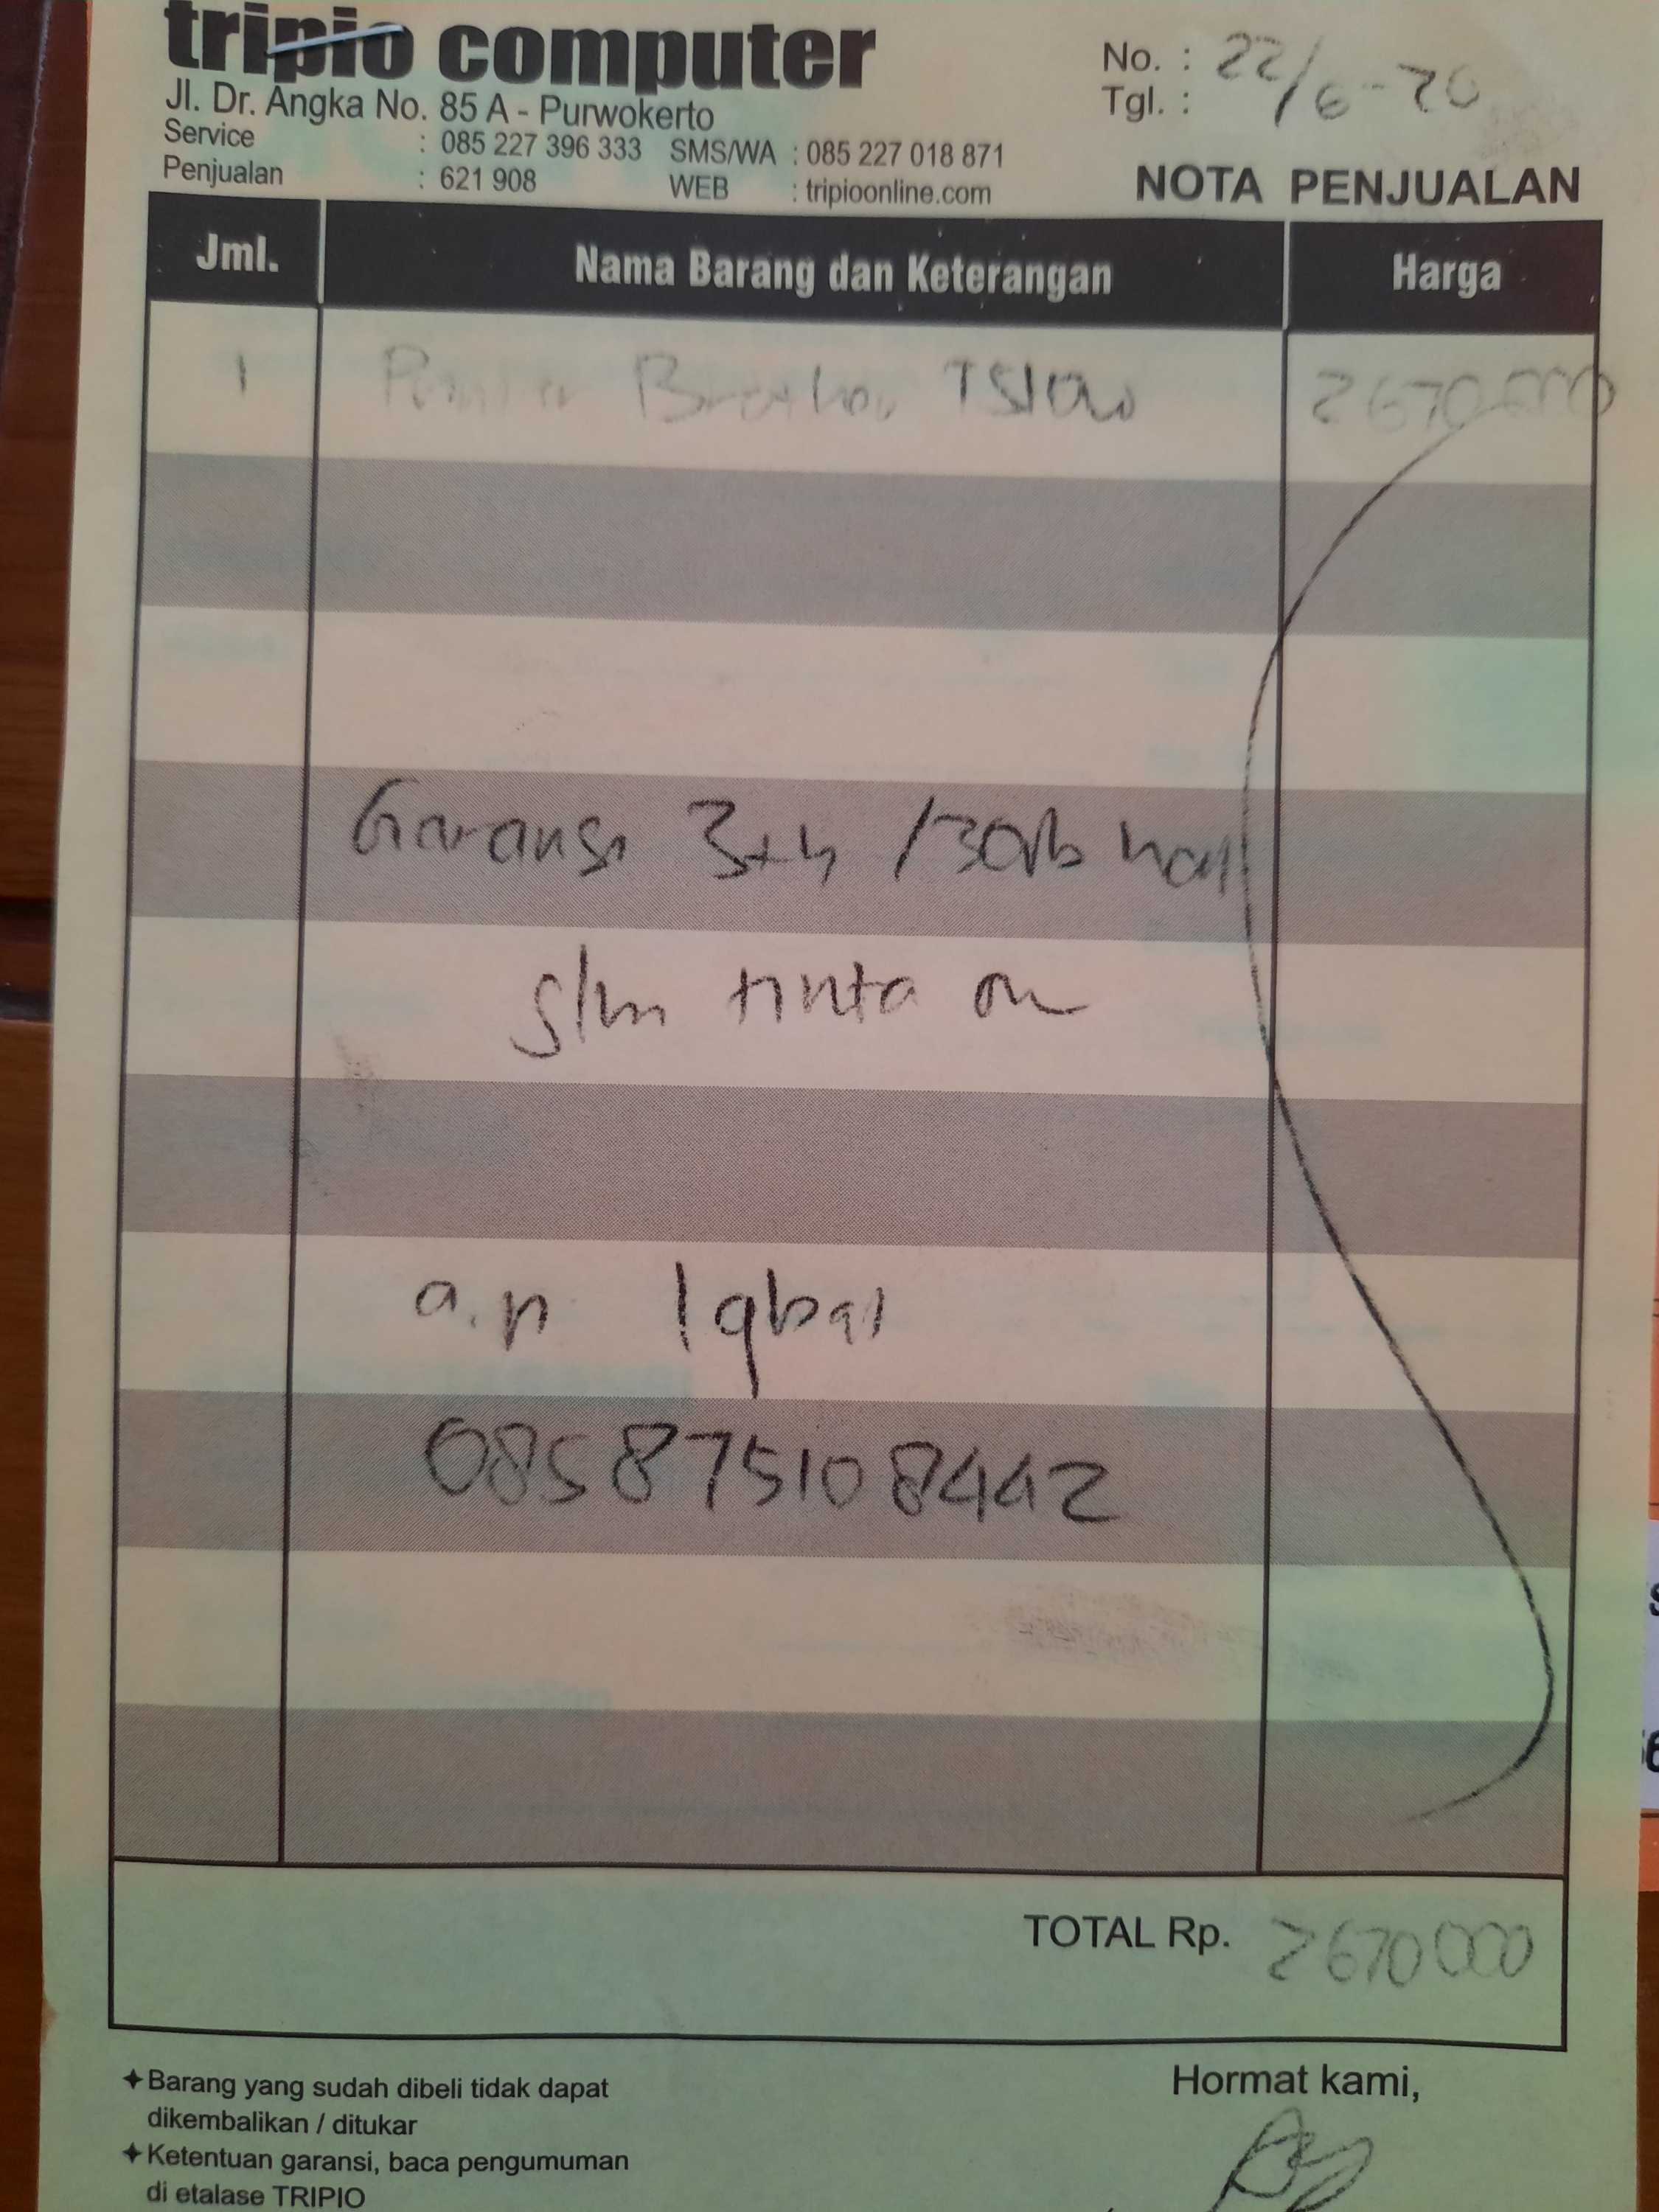 tripio computer
Jl. Dr. Angka No. 85 A - Purwokerto
Service : 085 227 396 333 SMS/WA : 085 227 018 871
Penjualan : 621 908 WEB : tripioonline.com
No. : 22/6-20
Tgl. :
NOTA PENJUALAN
Jml. Nama Barang dan Keterangan Harga
1 Printer Brother T510w 2670000
Garansi 3th /30rb hal
slm tinta ori
a.n Iqbal
085875108442
TOTAL Rp. 2670000
Barang yang sudah dibeli tidak dapat
dikembalikan / ditukar
Ketentuan garansi, baca pengumuman
di etalase TRIPIO
Hormat kami,